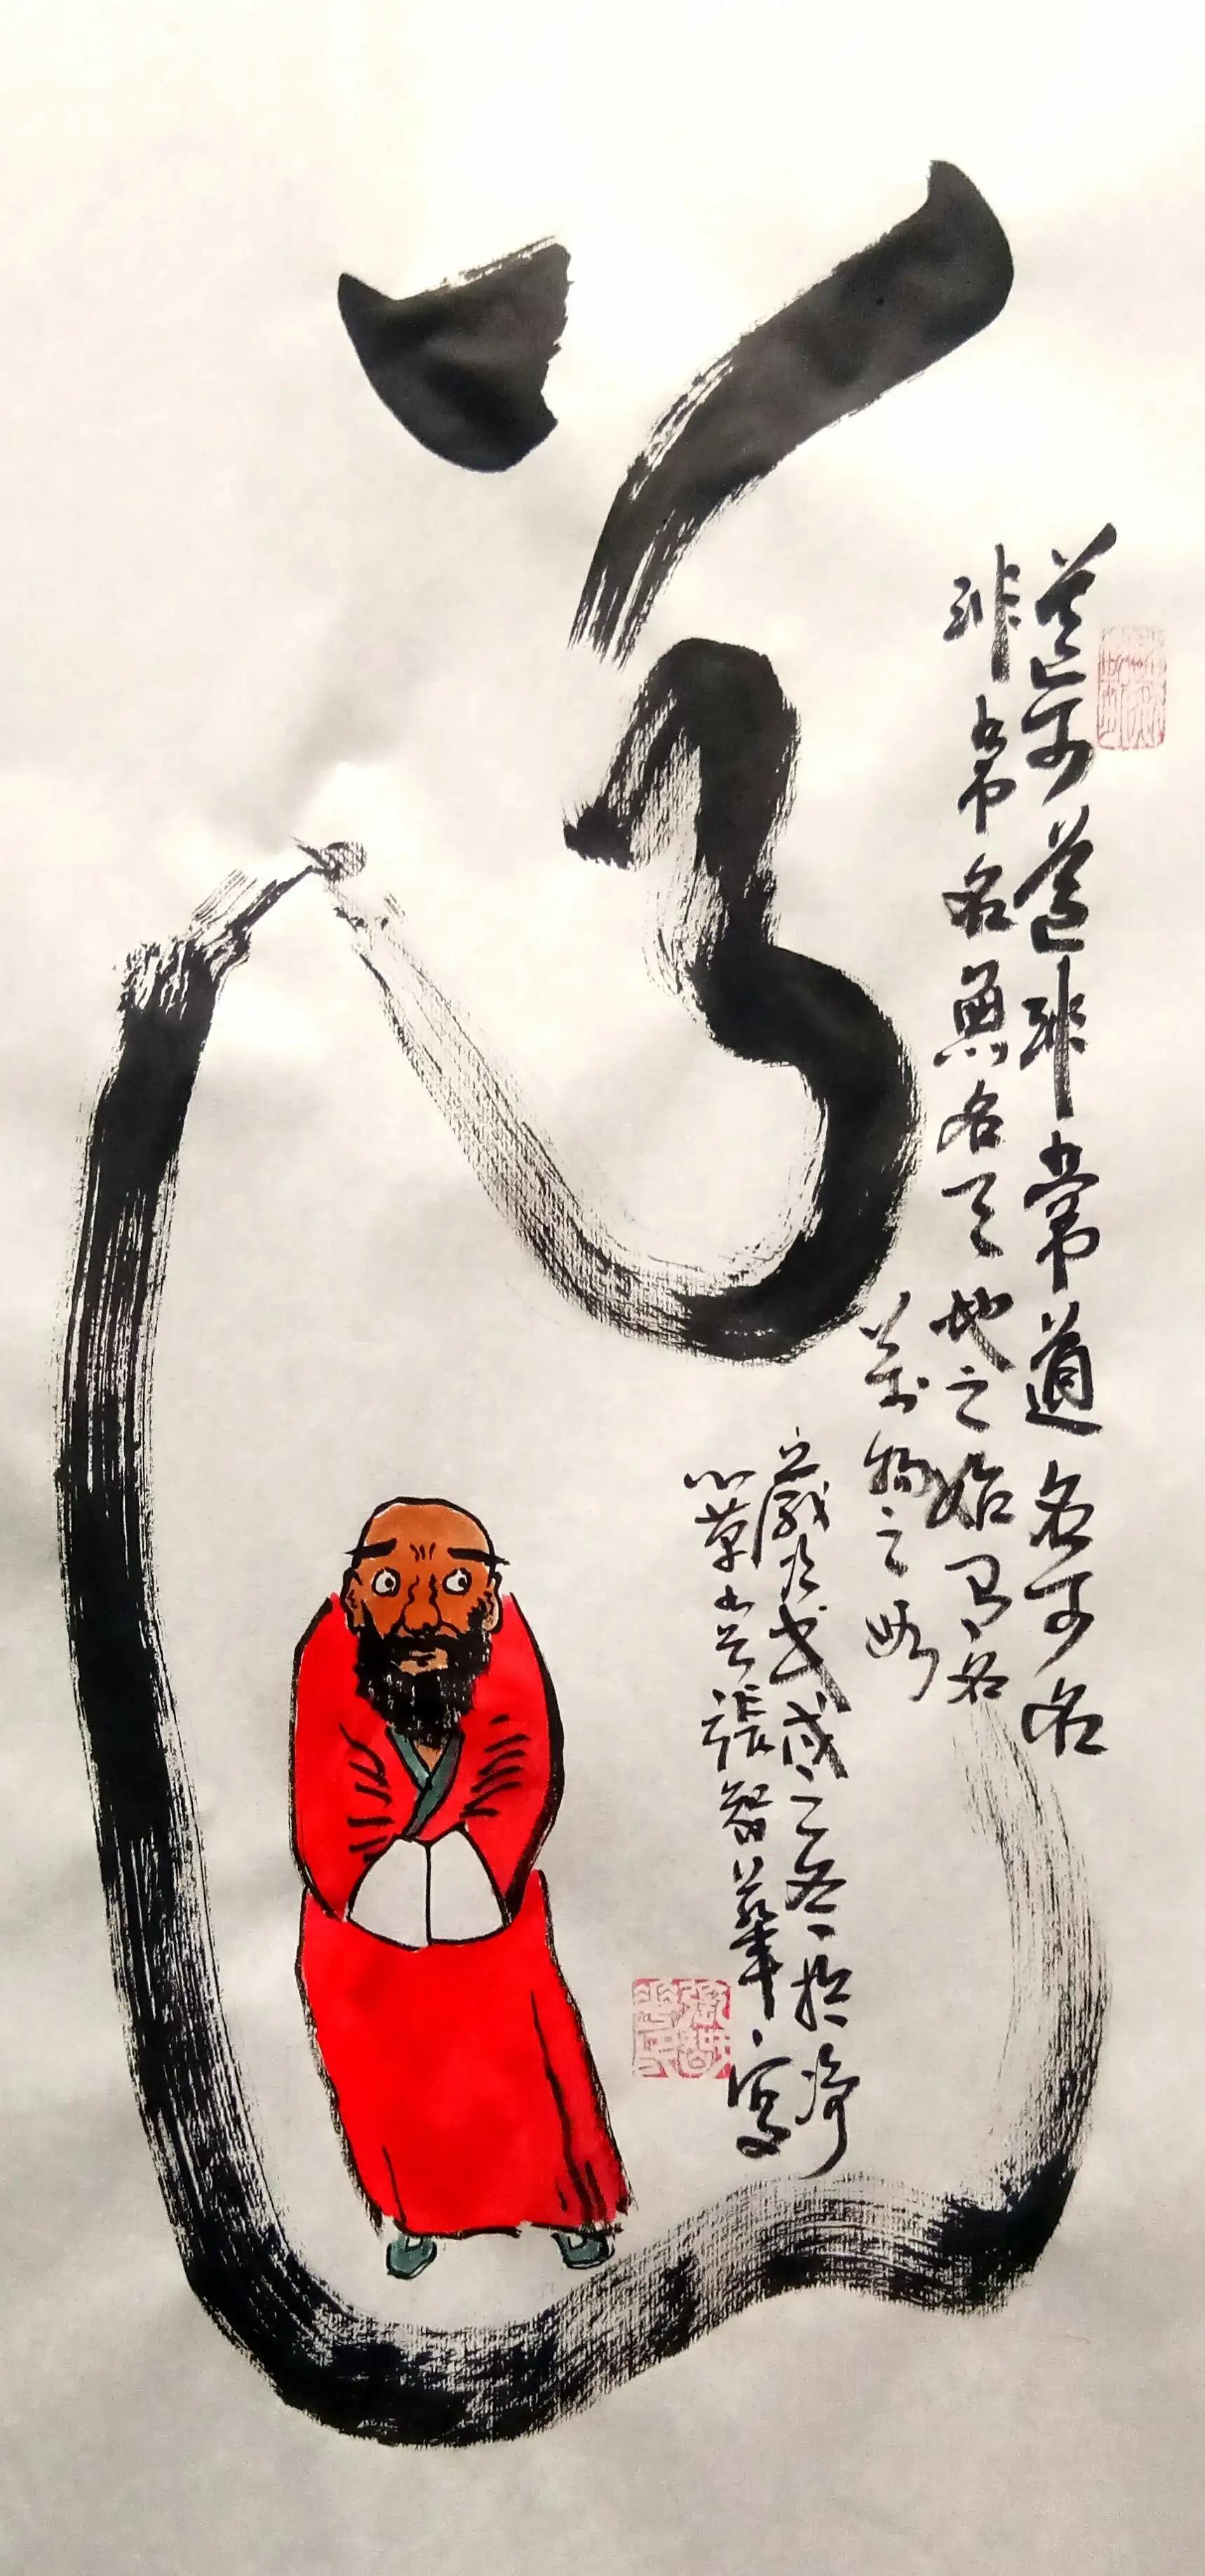 道
道可道非常道名可名
非常名無名天地之始有名
萬物之母
歲次戊戌之冬於
小草堂張智華寫